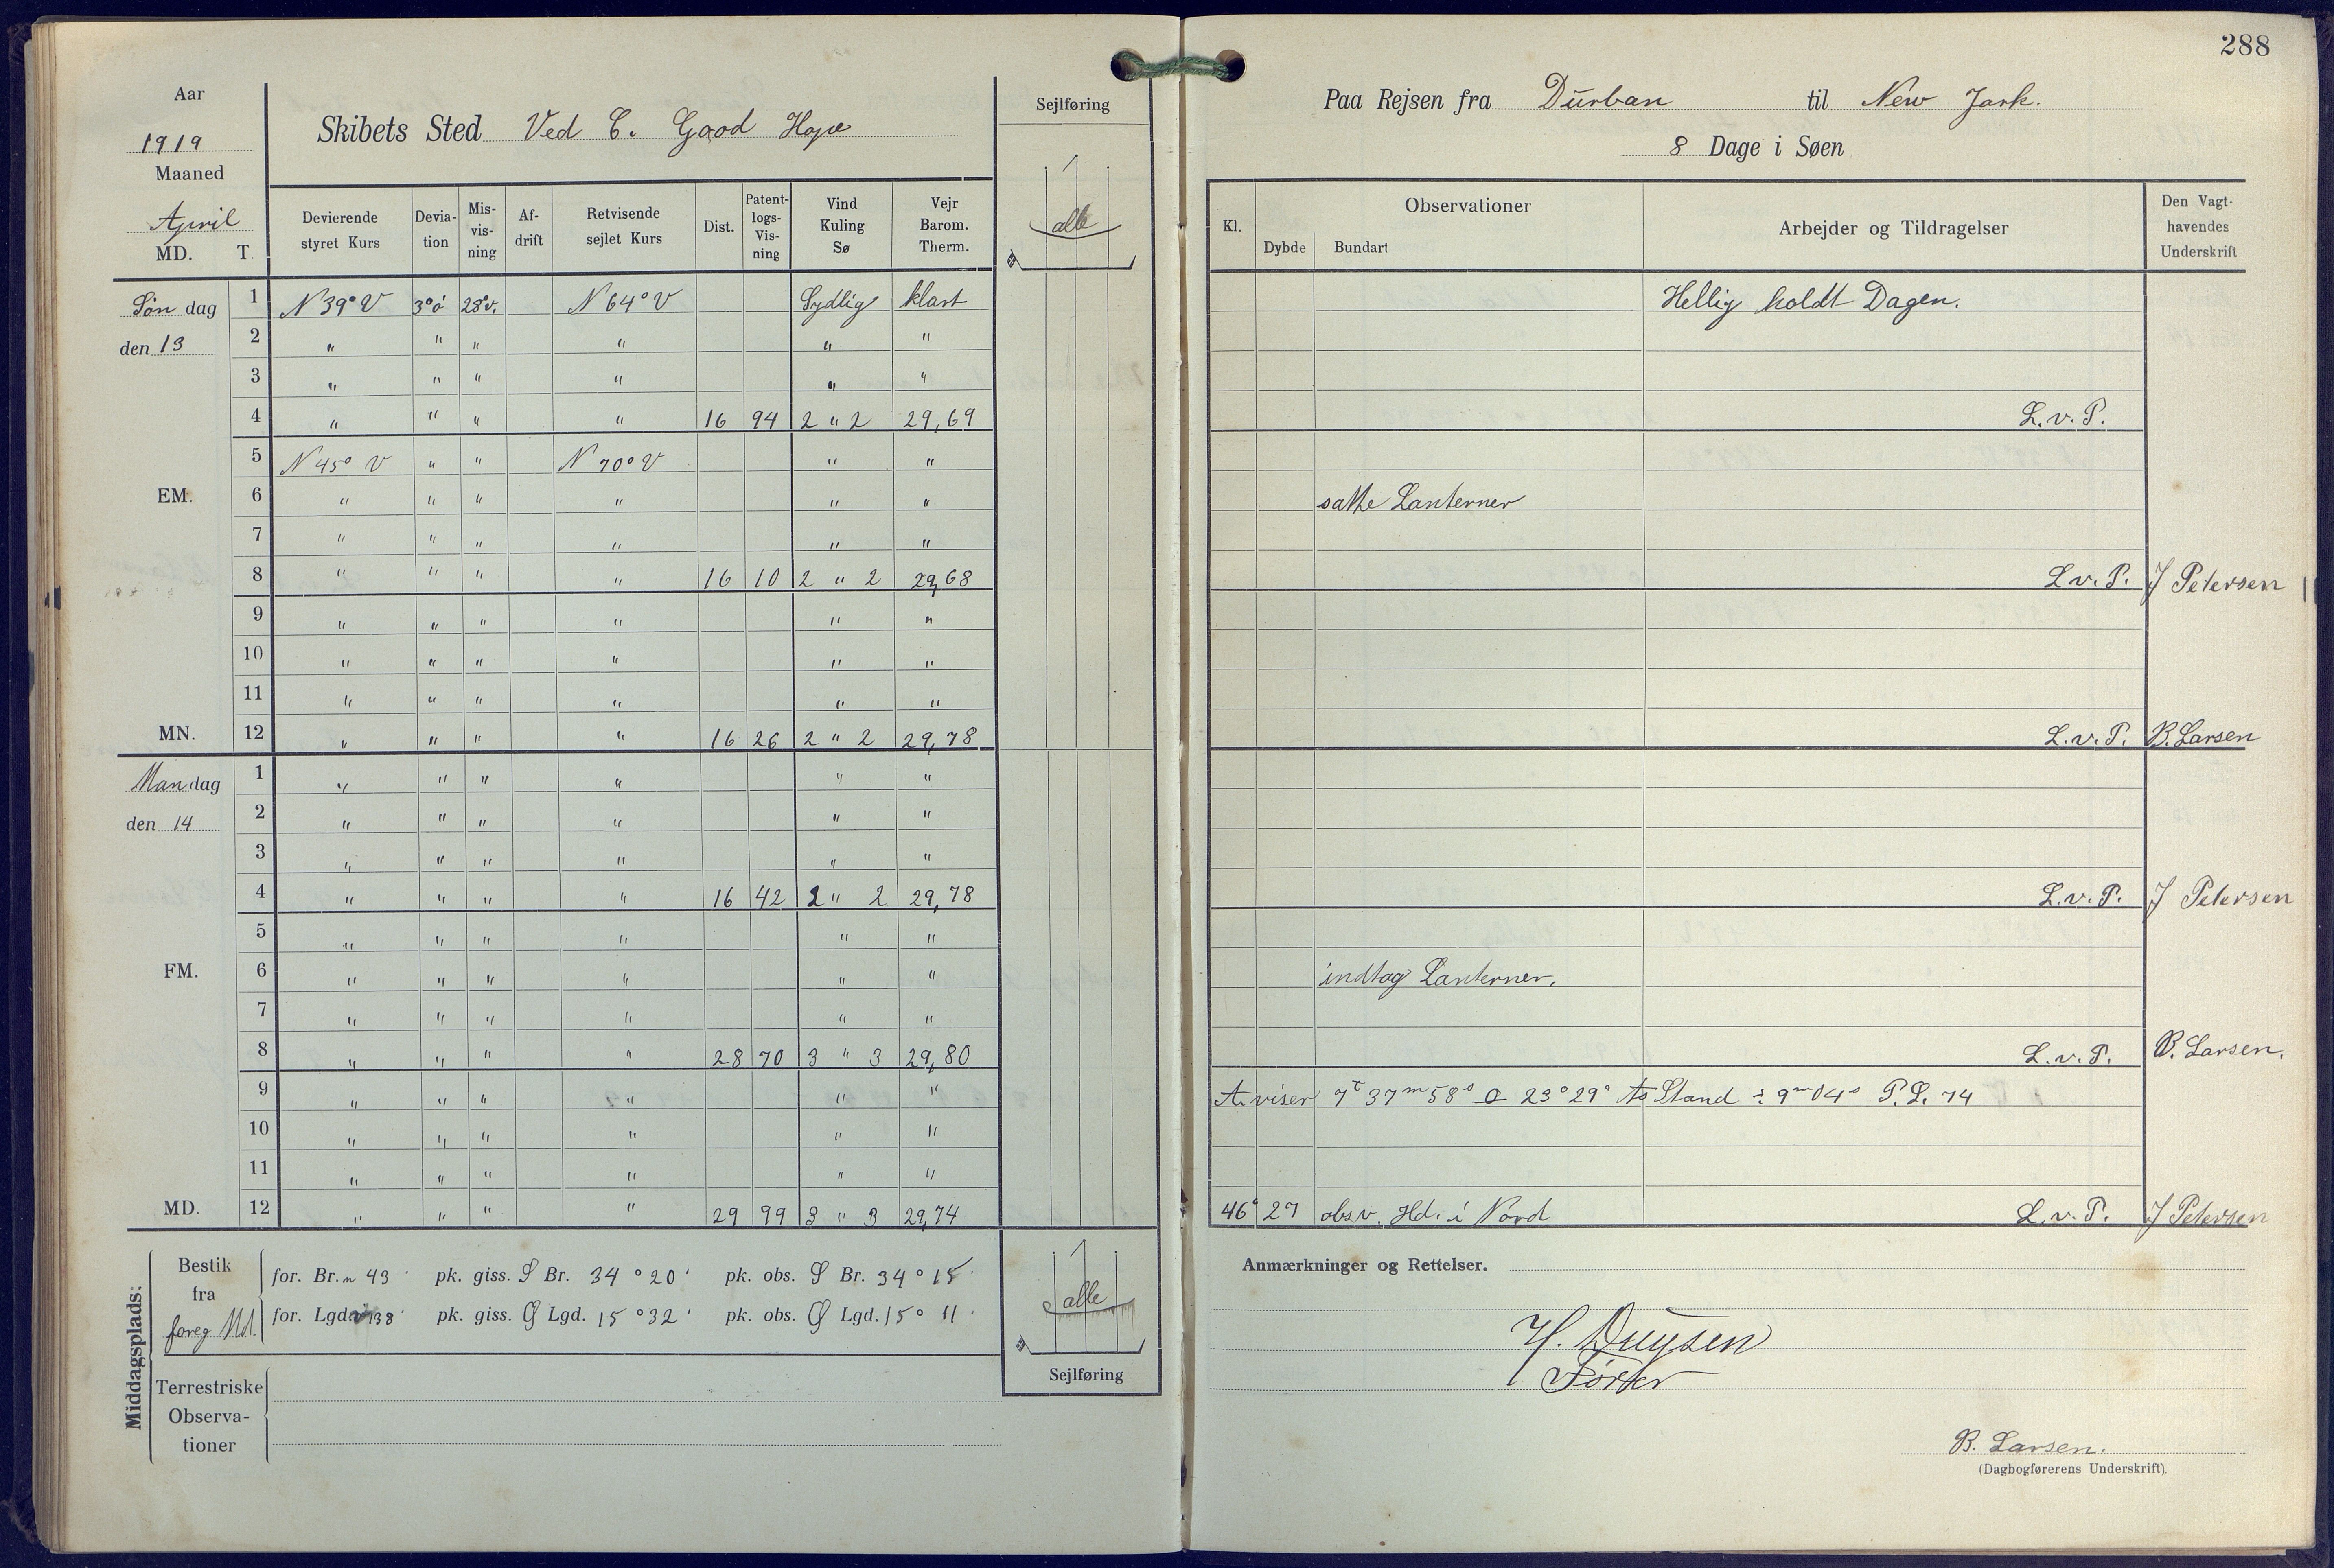 288
Aar
1919
Maaned
April
MD. T.
Skibets Sted Ved C. Good Hope
Sejlføring
alle
Devierende styret Kurs | Deviation | Misvisning | Afdrift | Retvisende sejlet Kurs | Dist. | Patentlogs-Visning | Vind Kuling Sø | Vejr Barom. Therm.
Søndag den 13
1 N 39° V 3° ø 28° v. N 64° V Sydlig klart
2 " " " " " "
3 " " " " " "
4 " " " " 16 94 2 " 2 29,69
5 N 45° V " " N 70° V " "
EM. 6 " " " " " "
7 " " " " " "
8 " " " " 16 10 2 " 2 29,68
9 " " " " " "
10 " " " " " "
11 " " " " " "
MN. 12 " " " " 16 26 2 " 2 29,78
Mandag den 14
1 " " " " " "
2 " " " " " "
3 " " " " " "
4 " " " " 16 42 2 " 2 29,78
5 " " " " " "
FM. 6 " " " " " "
7 " " " " " "
8 " " " " 28 70 3 " 3 29,80
9 " " " " " "
10 " " " " " "
11 " " " " " "
MD. 12 " " " " 29 99 3 " 3 29,74
Middagsplads:
Bestik fra foreg Md.
for. Br. n 43' pk. giss. S Br. 34° 20' pk. obs. S Br. 34° 15'
for. Lgd. v 138' pk. giss. Ø Lgd. 15° 32' pk. obs. Ø Lgd. 15° 11'
Terrestriske Observationer
alle
Sejlføring
Paa Rejsen fra Durban til New Jork.
8 Dage i Søen
Kl. | Observationer | Dybde | Bundart | Arbejder og Tildragelser | Den Vagthavendes Underskrift
Hellig holdt Dagen.
L.v.P.
satte Lanterner
L.v.P. J Petersen
L.v.P. B. Larsen
L.v.P. J Petersen
indtog Lanterner.
L.v.P. B. Larsen.
A. viser 7t 37m 58s 23° 29' As Stand ÷ 9m 04s P.L. 74
46° 27 obsv. Hd. i Nord L.v.P. J Petersen
Anmærkninger og Rettelser.
H. Duysen
Fører
B. Larsen.
(Dagbogførerens Underskrift).